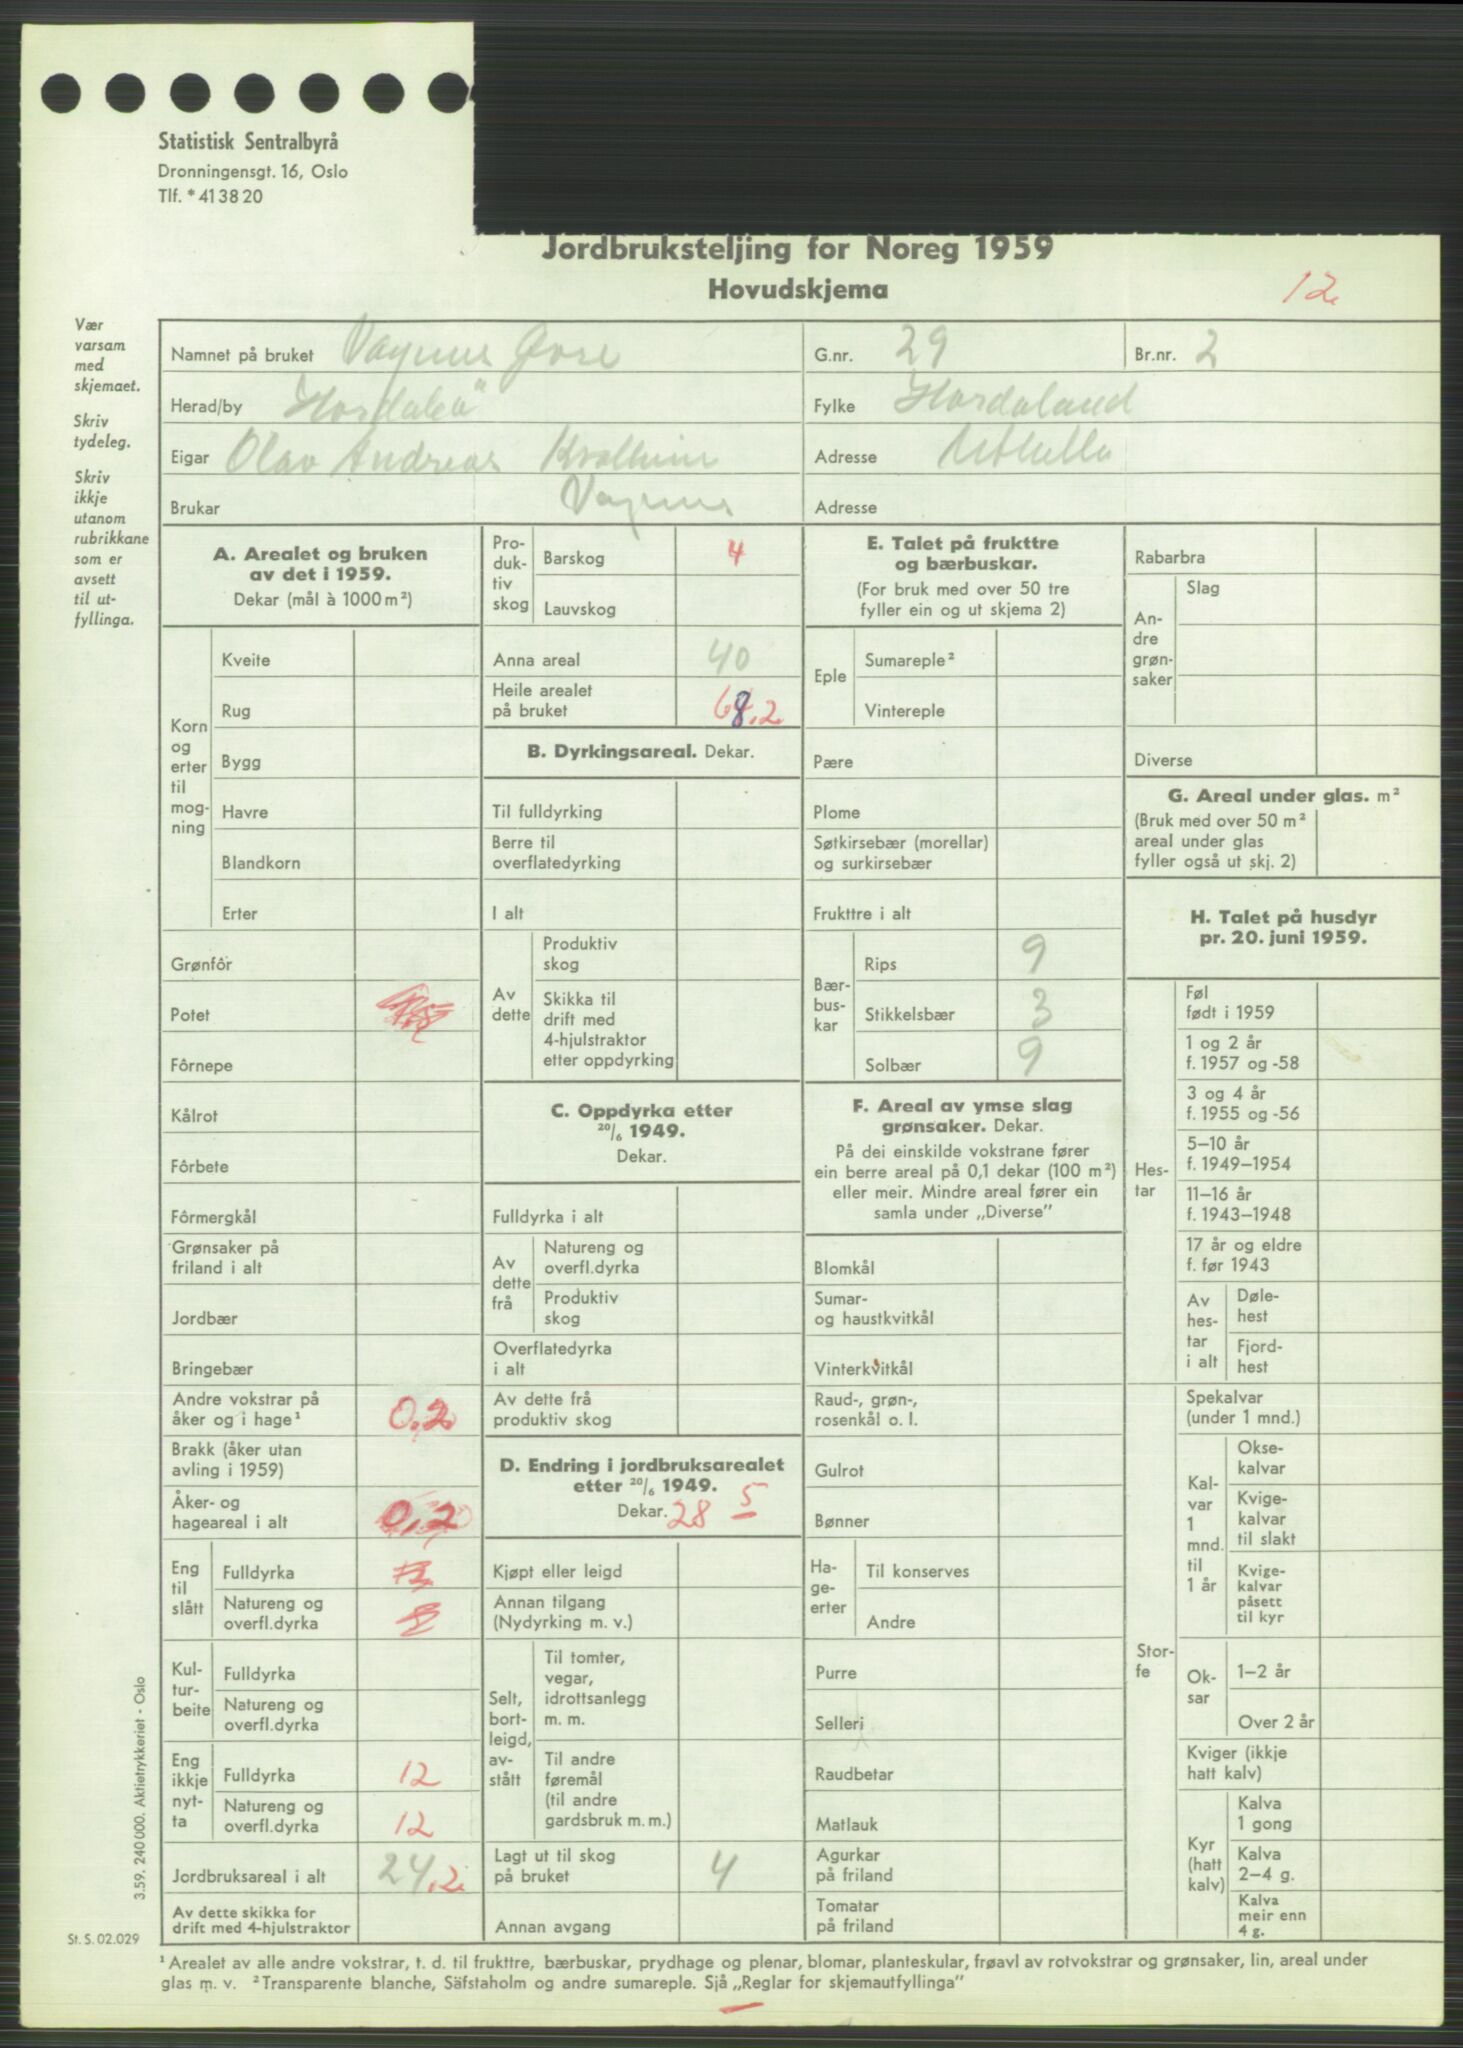 Statistisk Sentralbyrå
Dronningensgt. 16, Oslo
Tlf. * 41 38 20
Jordbruksteljing for Noreg 1959
Hovudskjema
12
Vær
varsam
med
skjemaet.
Skriv
tydeleg.
Skriv
ikkje
utanom
rubrikkane
som er
avsett
til ut-
fyllinga.
Namnet på bruket Øvre
G.nr. 29
Br.nr. 2
Herad/by
Fylke Hordaland
Eigar Olav Andreas
Adresse
Brukar
Adresse
A. Arealet og bruken
av det i 1959.
Dekar (mål à 1000 m²)
Korn
og
erter
til
mog-
ning
Kveite
Rug
Bygg
Havre
Blandkorn
Erter
Grønfôr
Potet
Fôrnepe
Kålrot
Fôrbete
Fôrmergkål
Grønsaker på
friland i alt
Jordbær
Bringebær
Andre vokstrar på
åker og i hage¹ 0,2
Brakk (åker utan
avling i 1959)
Åker- og
hageareal i alt 0,2
Eng
til
slått
Fulldyrka
Natureng og
overfl.dyrka
Kul-
tur-
beite
Fulldyrka
Natureng og
overfl.dyrka
Eng
ikkje
nyt-
ta
Fulldyrka 12
Natureng og
overfl.dyrka 12
Jordbruksareal i alt 24,2
Av dette skikka for
drift med 4-hjulstraktor
Pro-
duk-
tiv
skog
Barskog 4
Lauvskog
Anna areal 40
Heile arealet
på bruket 68,2
B. Dyrkingsareal. Dekar.
Til fulldyrking
Berre til
overflatedyrking
I alt
Av
dette
Produktiv
skog
Skikka til
drift med
4-hjulstraktor
etter oppdyrking
C. Oppdyrka etter
20/6 1949.
Dekar.
Fulldyrka i alt
Av
dette
frå
Natureng og
overfl.dyrka
Produktiv
skog
Overflatedyrka
i alt
Av dette frå
produktiv skog
D. Endring i jordbruksarealet
etter 20/6 1949.
Dekar. 28 5
Kjøpt eller leigd
Annan tilgang
(Nydyrking m. v.)
Selt,
bort-
leigd,
av-
stått
Til tomter,
vegar,
idrottsanlegg
m. m.
Til andre
føremål
(til andre
gardsbruk m. m.)
Lagt ut til skog
på bruket 4
Annan avgang
E. Talet på frukttre
og bærbuskar.
(For bruk med over 50 tre
fyller ein og ut skjema 2)
Eple
Sumareple²
Vintereple
Pære
Plome
Søtkirsebær (morellar)
og surkirsebær
Frukttre i alt
Bær-
bus-
kar
Rips 9
Stikkelsbær 3
Solbær 9
F. Areal av ymse slag
grønsaker. Dekar.
På dei einskilde vokstrane fører
ein berre areal på 0,1 dekar (100 m²)
eller meir. Mindre areal fører ein
samla under „Diverse”
Blomkål
Sumar-
og haustkvitkål
Vinterkvitkål
Raud-, grøn-,
rosenkål o. l.
Gulrot
Bønner
Ha-
ge-
erter
Til konserves
Andre
Purre
Selleri
Raudbetar
Matlauk
Agurkar
på friland
Tomatar
på friland
Rabarbra
An-
dre
grøn-
saker
Slag
Diverse
G. Areal under glas. m²
(Bruk med over 50 m²
areal under glas
fyller også ut skj. 2)
H. Talet på husdyr
pr. 20. juni 1959.
Hes-
tar
Føl
født i 1959
1 og 2 år
f. 1957 og -58
3 og 4 år
f. 1955 og -56
5–10 år
f. 1949–1954
11–16 år
f. 1943–1948
17 år og eldre
f. før 1943
Av
hes-
tar
i alt
Døle-
hest
Fjord-
hest
Stor-
fe
Spekalvar
(under 1 mnd.)
Kal-
var
1
mnd.
til
1 år
Okse-
kalvar
Kvige-
kalvar
til slakt
Kvige-
kalvar
påsett
til kyr
Ok-
sar
1–2 år
Over 2 år
Kviger (ikkje
hatt kalv)
Kyr
(hatt
kalv)
Kalva
1 gong
Kalva
2–4 g.
Kalva
meir enn
4 g.
3.59. 240 000. Aktietrykkeriet - Oslo
St. S. 02.029
¹ Arealet av alle andre vokstrar, t. d. til frukttre, bærbuskar, prydhage og plenar, blomar, planteskular, frøavl av rotvokstrar og grønsaker, lin, areal under
glas m. v. ² Transparente blanche, Säfstaholm og andre sumareple. Sjå „Reglar for skjemautfyllinga”